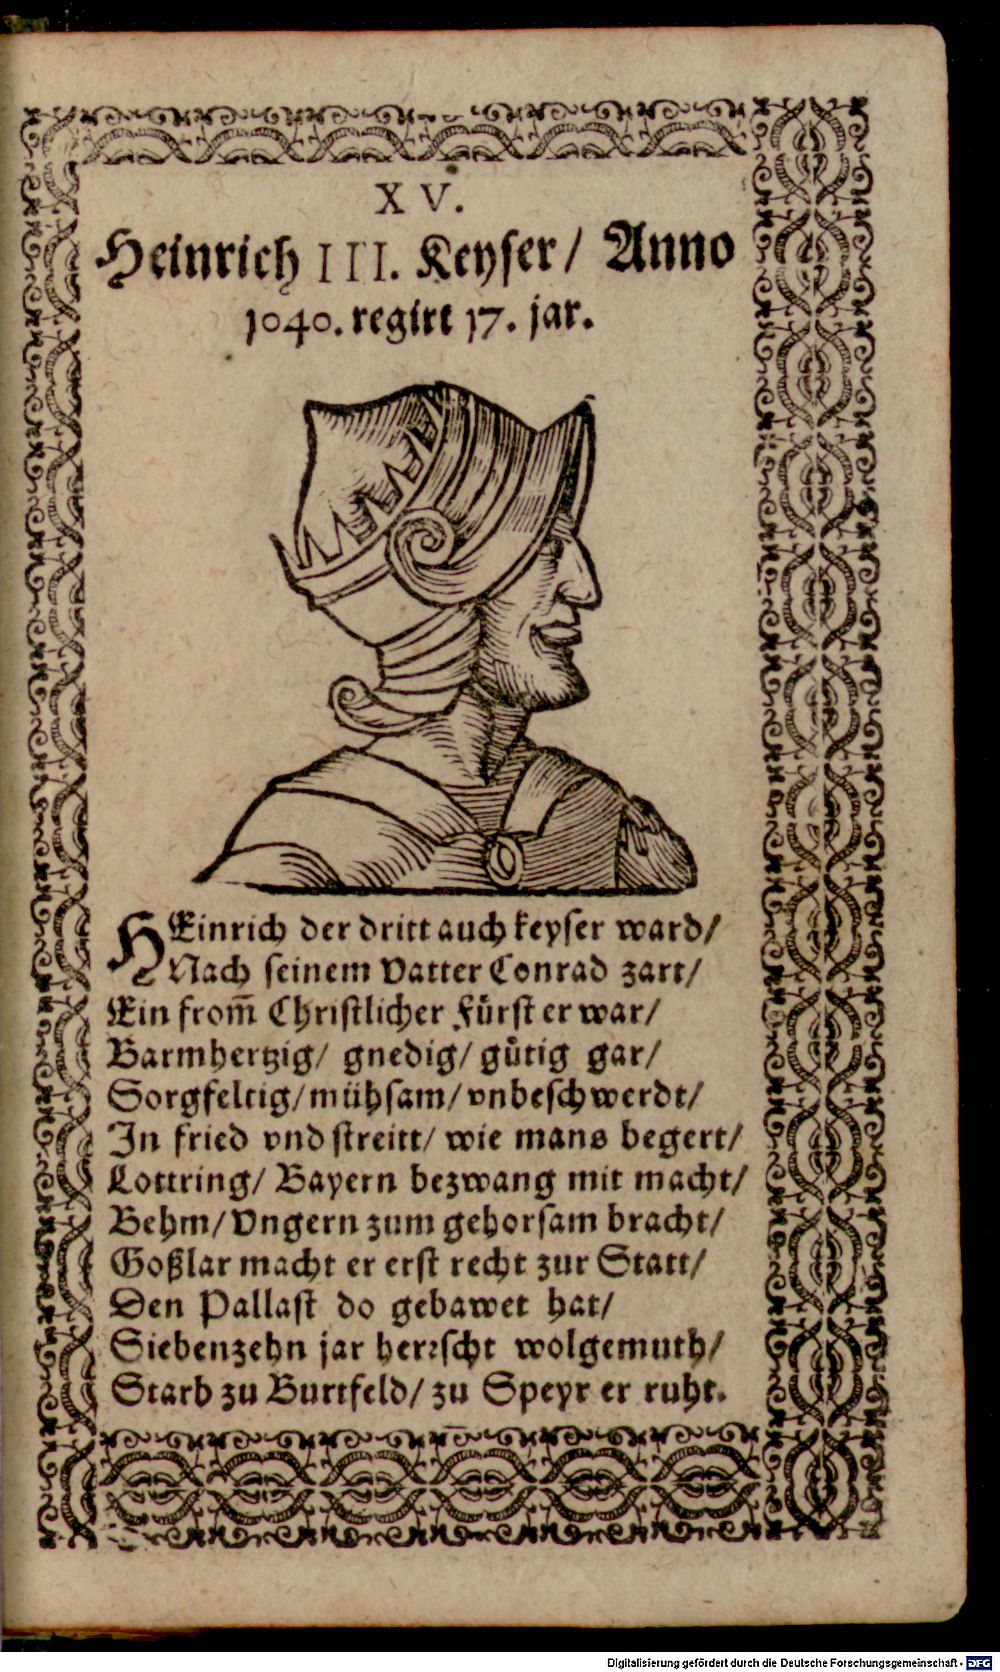 XV.
Heinrich III. Keyser/ Anno
1040. regirt 17. jar.
HEinrich der dritt auch keyser ward/
Nach seinem Vatter Conrad zart/
Ein from̃ Christlicher Fürst er war/
Barmhertzig/ gnedig/ gůtig gar/
Sorgfeltig/ mühsam/ vnbeschwerdt/
In fried vnd streitt/ wie mans begert/
Lottring/ Bayern bezwang mit macht/
Behm/ Vngern zum gehorsam bracht/
Goßlar macht er erst recht zur Statt/
Den Pallast do gebawet hat/
Siebenzehn jar herꝛscht wolgemuth/
Starb zu Burtfeld/ zu Speyr er ruht.
Digitalisierung gefördert durch die Deutsche Forschungsgemeinschaft - DFG